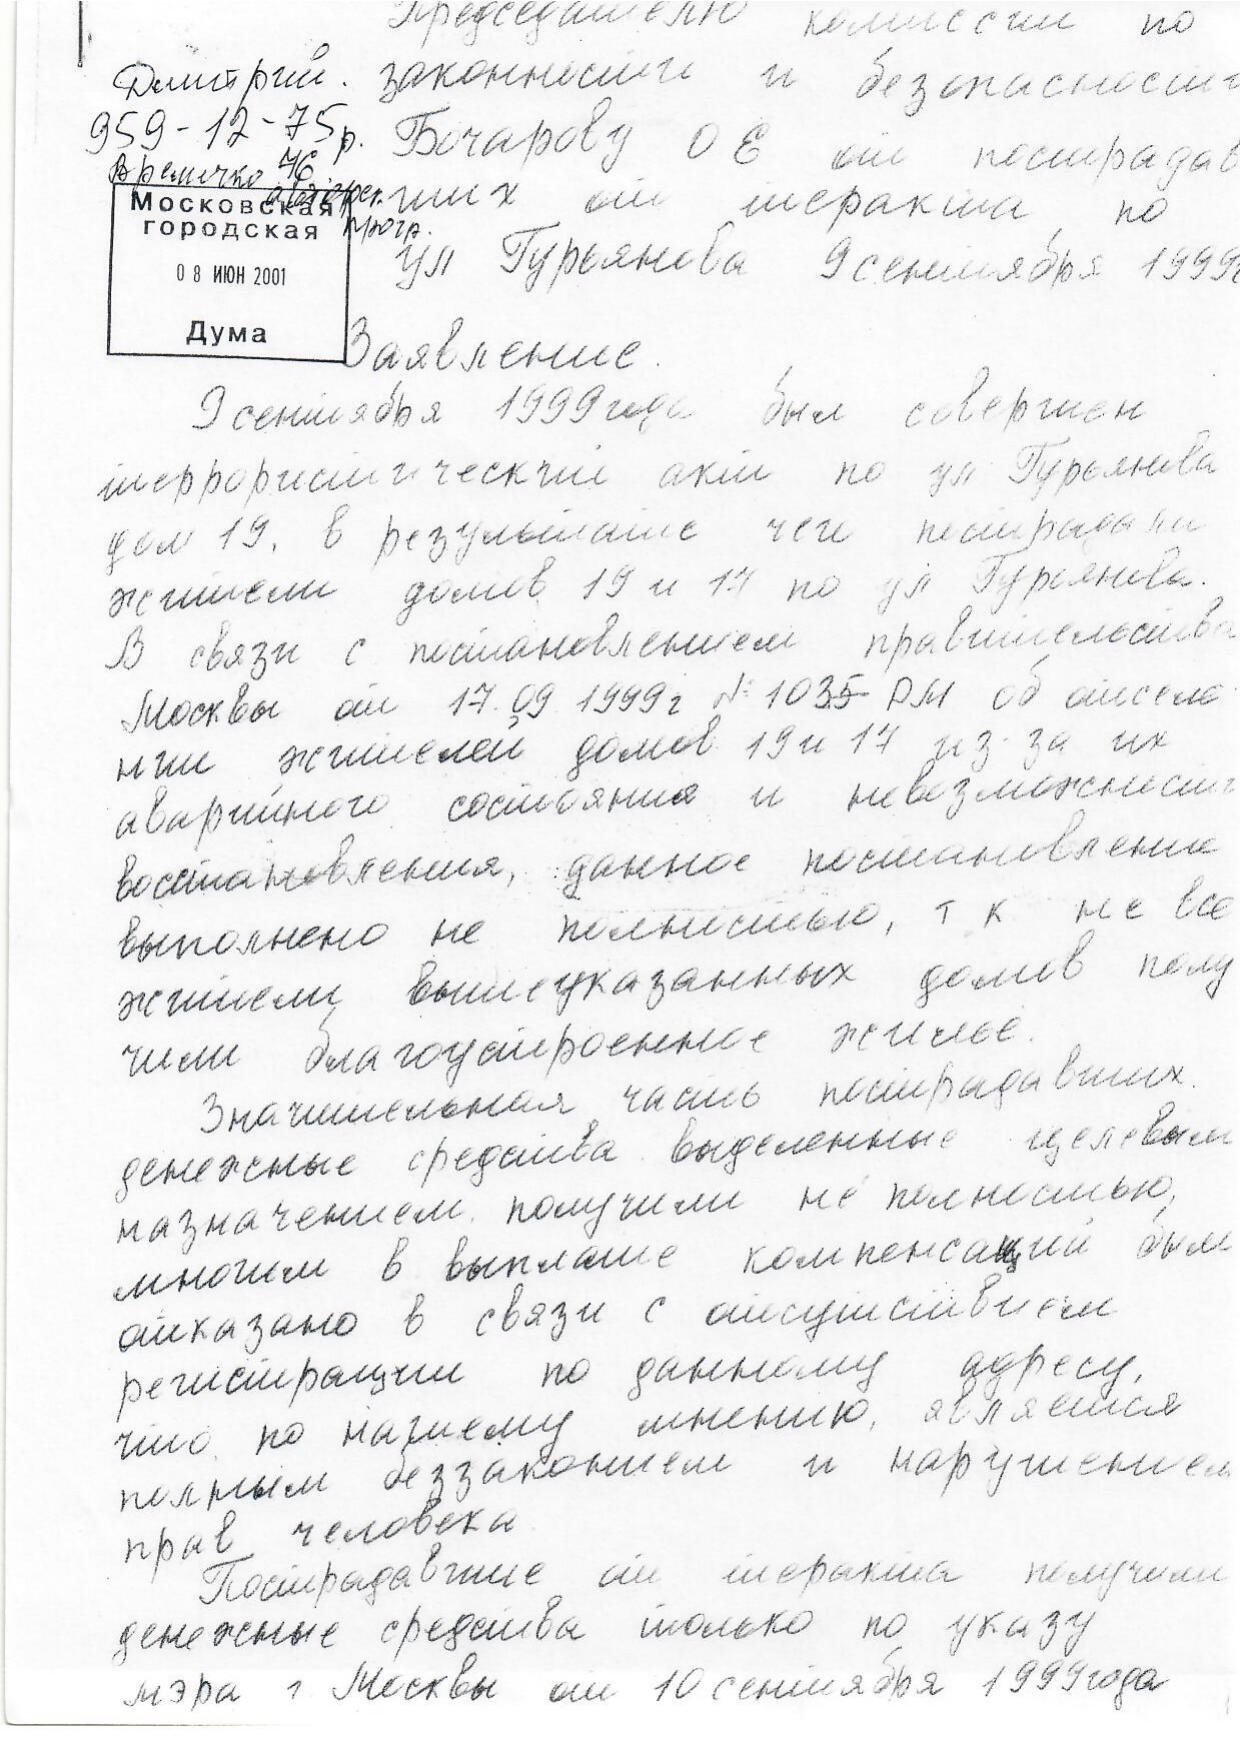 Председателю комиссии по
законности и безопасности
Бочарову О Е от пострадав
ших от теракта по
ул Гурьянова 9 сентября 1999г
Дмитрий.
959-12-75 р.
Московская
городская
08 ИЮН 2001
Дума
Заявление.
9 сентября 1999 года был совершен
террористический акт по ул Гурьянова
дом 19, в результате чего пострадали
жители домов 19 и 17 по ул Гурьянова.
В связи с постановлением правительства
Москвы от 17.09 1999г № 1035 РМ об отселе
нии жителей домов 19 и 17 из-за их
аварийного состояния и невозможности
восстановления, данное постановление
выполнено не полностью, т к не все
жители вышеуказанных домов полу
чили благоустроенное жильё.
Значительная часть пострадавших
денежные средства выделенные целевым
назначением получили не полностью,
многим в выплате компенсаций было
отказано в связи с отсутствием
регистрации по данному адресу,
что, по нашему мнению, является
полным беззаконием и нарушением
прав человека
Пострадавшие от теракта получили
денежные средства только по указу
мэра г Москвы от 10 сентября 1999 года